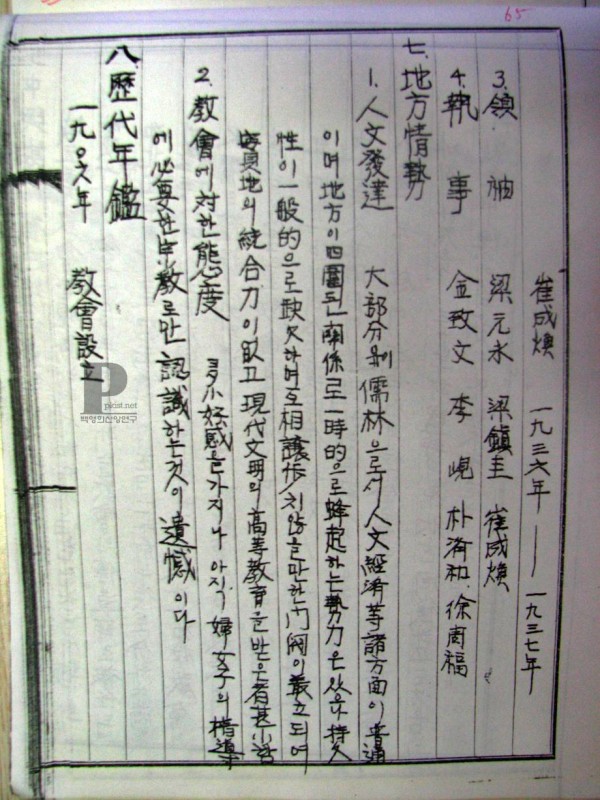 65
崔成煥 一九三六年 — 一九三七年
3. 領袖 梁元永 梁鎮圭 崔成煥
4. 執事 金致文 李 峴 朴濟和 徐 福
七. 地方情勢
1. 人文發達 大部分 儒林으로서 人文經濟等諸方面이 普通
이며 地方이 四圍된 關係로 一時的으로 蜂起하는 勢力은 있으나 持久
性이 一般的으로 缺欠하며 互相讓步치않을만한 門閥이 並立되여
地의 統合力이없고 現代文明의 高等教育을 받은者甚小
2. 教會에 対한 態度 多少好感을가지나 아직 婦女子의 指導
에 必要한 宗教로만 認識하는것이 遺憾이다
八. 歷代年鑑
一九 年 教會設立
pkist.net
백영희신앙연구